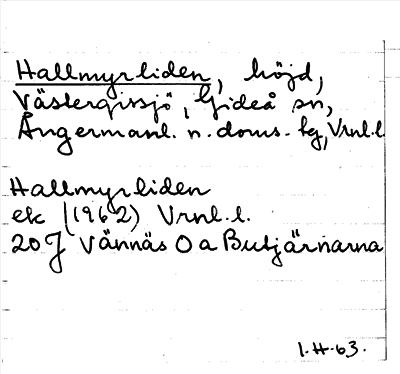 Hallmyrliden, höjd,
Västergissjö, Gideå sn,
Ångermanl. n. doms. hg, Vrnl.l.
Hallmyrliden
ek (1962) Vrnl.l.
20J Vännäs 0 a Butjärnarna
1.H.63.